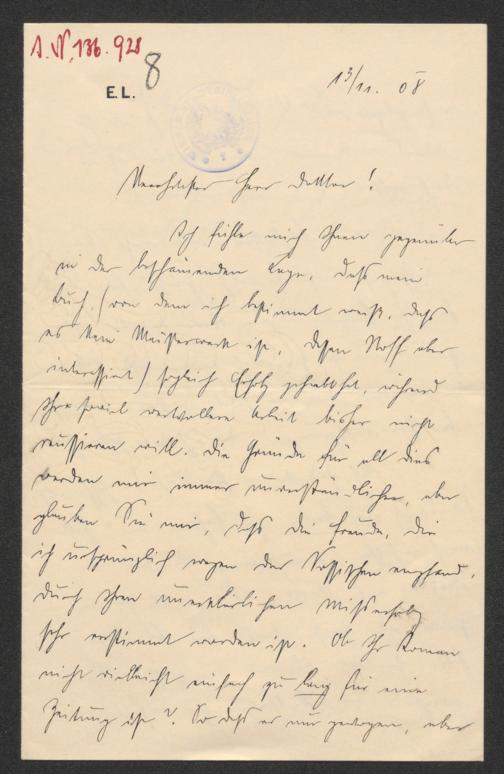 A.N. 136.928
8
E.L.
13/11. 08
Verehrtester Herr Doktor!
Ich fühle mich Ihnen gegenüber
in der beschämenden Lage, dass mein
Buch, (von dem ich bestimmt weiß, dass
es kein Meisterwerk ist, dessen Stoff aber
interessiert) sogleich Erfolg gehabt hat, während
Ihre soviel wertvollere Arbeit bisher nicht
reussieren will. Die Gründe für all dies
werden mir immer unverständlicher, aber
glauben Sie mir, dass die Freude, die
ich ursprünglich wegen der empfand,
durch Ihren unerklärlichen Misserfolg
sehr verstimmt worden ist. Ob Ihr Roman
nicht vielleicht einfach zu lang für eine
Zeitung ist? So dass er nur gezwungen, aber